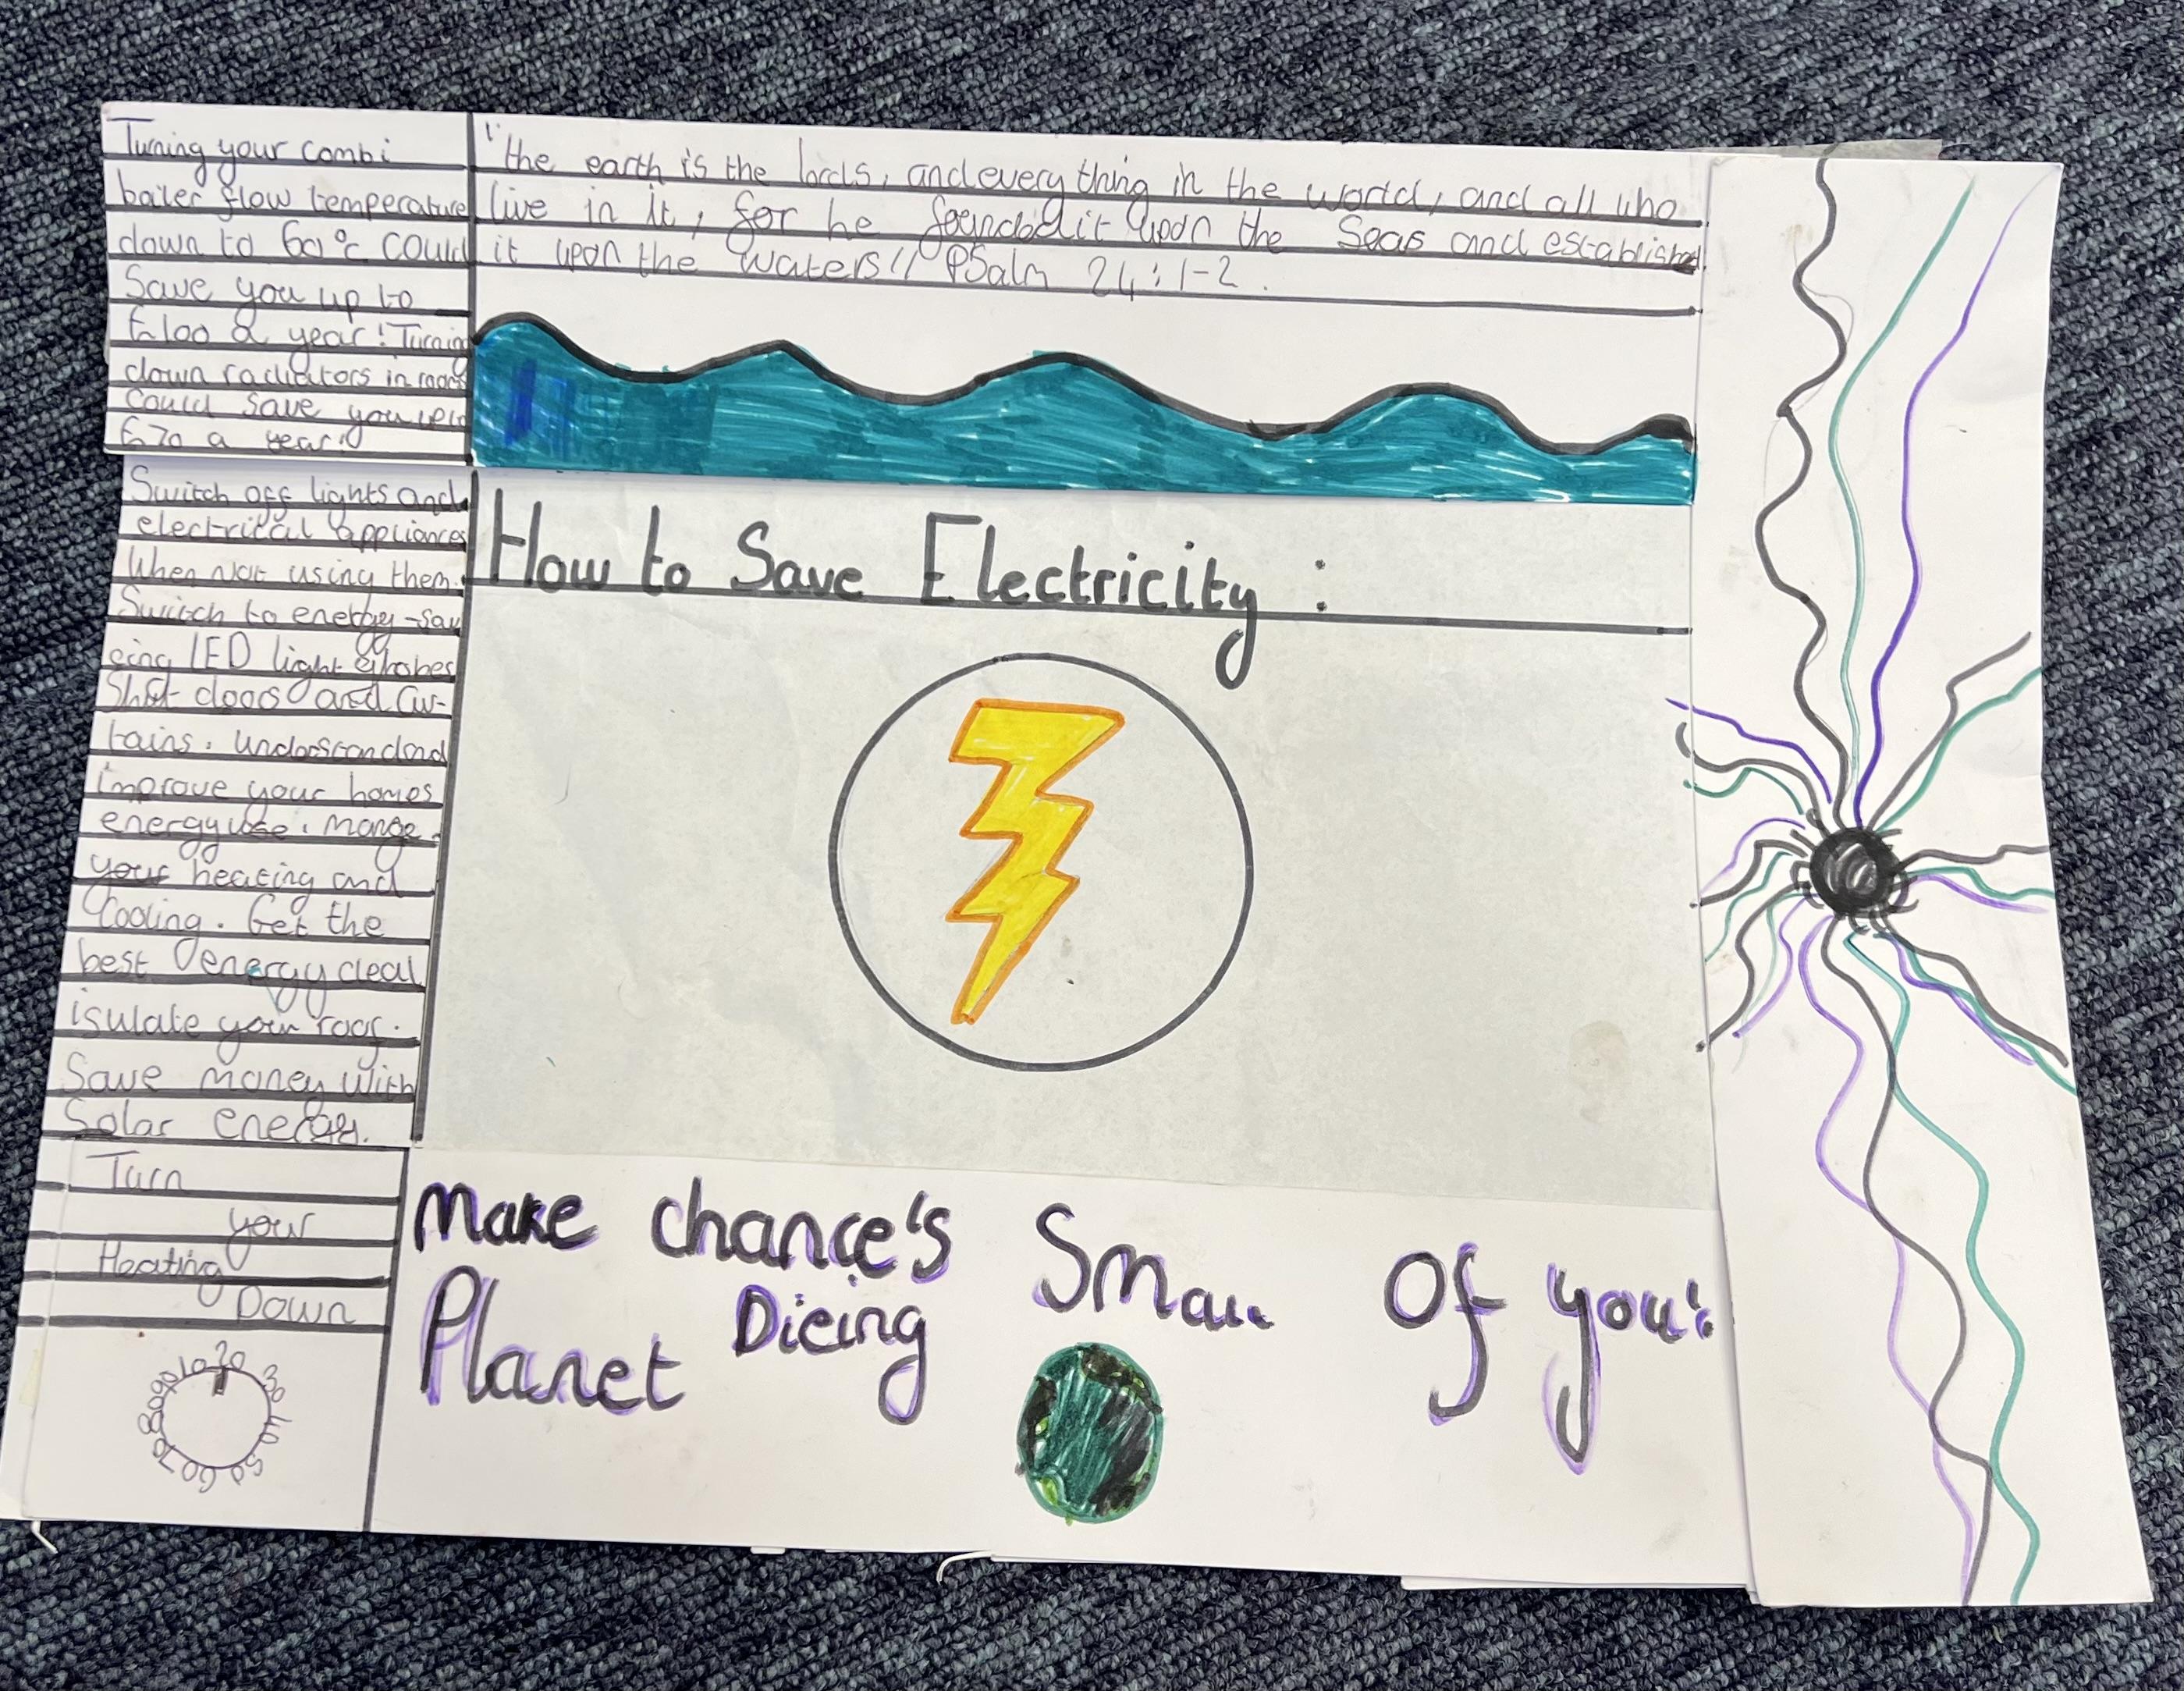 Turning your combi
boiler flow temperature
down to 60°c could
Save you up to
£100 a year! Turning
down radiators in rooms
could save you up to
£70 a year!
"the earth is the lords, and everything in the world, and all who
live in it, for he founded it upon the Seas and established
it upon the waters" PSalm 24:1-2.
How to Save Electricity:
Switch off lights and
electrical appliances
When Not using them.
Switch to energy-sav
eing LED light
Shut doors and Cur-
tains. understand and
improve your homes
energy use. Mange
your heating and
Cooling. Get the
best energy deal
isulate your roof.
Save money with
Solar energy.
Turn
your
Heating
Down
10 20 30 40 50 60 70 80 90
Make chance's Small Of you:
Planet Dieing